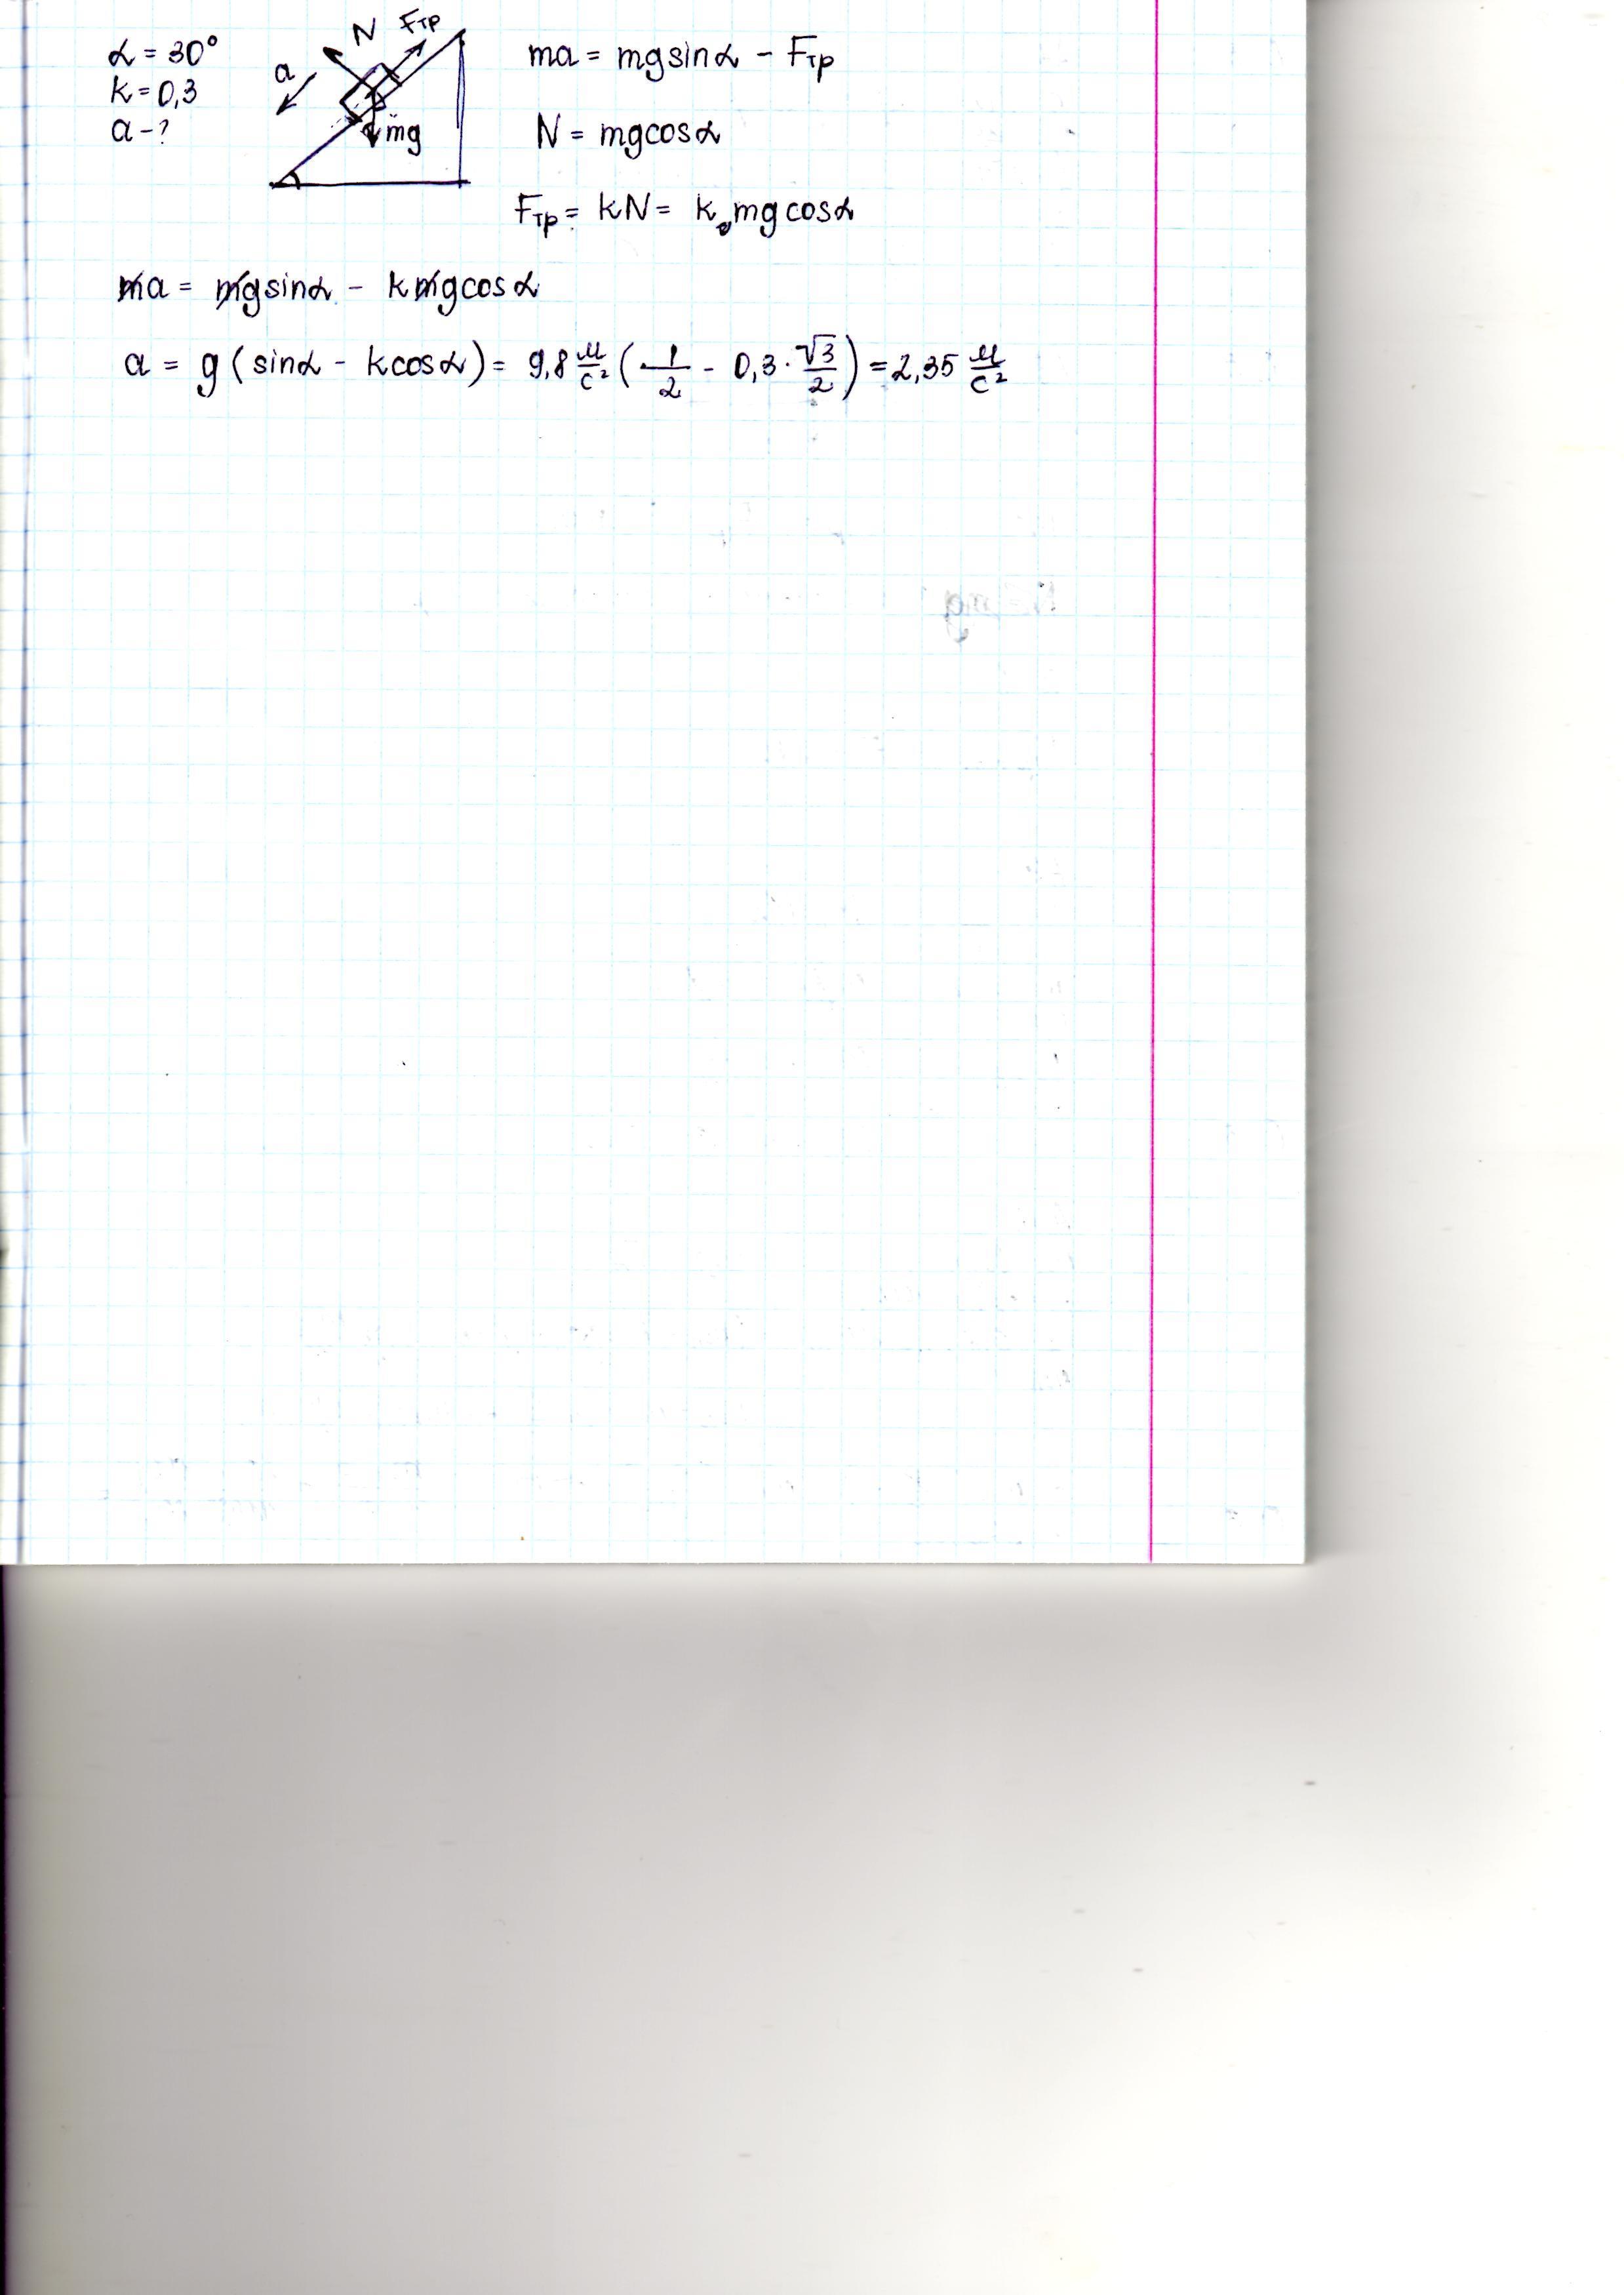 α = 30°
k = 0,3
a - ?
a
N
Fтр
mg
ma = mg sinα - Fтр
N = mg cosα
Fтр = kN = k mg cosα
ma = mg sinα - kmg cosα
a = g (sinα - k cosα) = 9,8 м/с² (1/2 - 0,3 · √3/2) = 2,35 м/с²